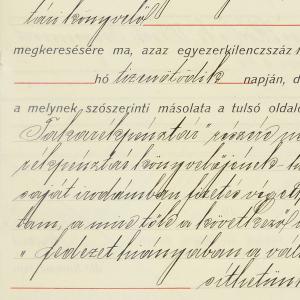 tári könyvelő
megkeresésére ma, azaz egyezerkilenczszáz
hó tizenötödik napján, d
a melynek szószerinti másolata a tulsó oldalo
Takarékpénztár" részére
rékpénztár könyvelőjének
saját irodámban fizetés végett
tam, a mire tőle a következő
„ fedezet hiányában a vál
síthetün